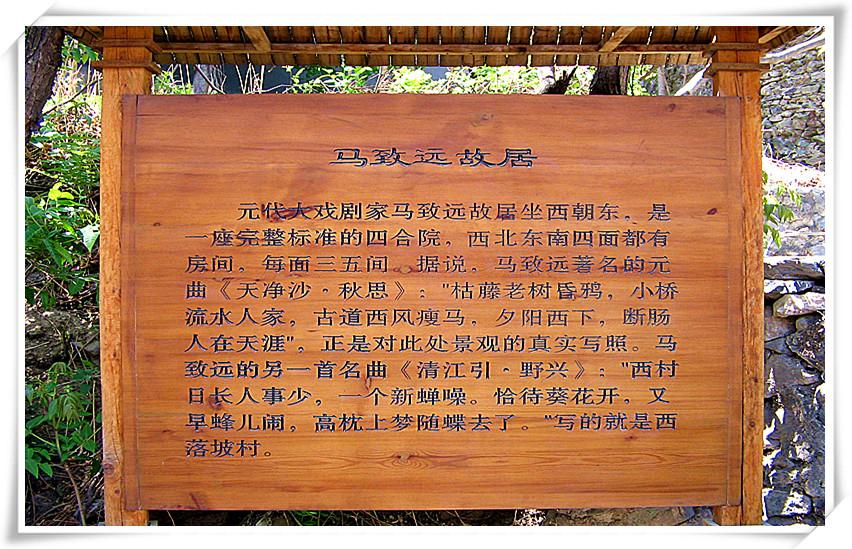 马致远故居
元代大戏剧家马致远故居坐西朝东，是
一座完整标准的四合院，西北东南四面都有
房间，每面三五间。据说，马致远著名的元
曲《天净沙·秋思》："枯藤老树昏鸦，小桥
流水人家，古道西风瘦马，夕阳西下，断肠
人在天涯"，正是对此处景观的真实写照。马
致远的另一首名曲《清江引·野兴》："西村
日长人事少，一个新蝉噪。恰待葵花开，又
早蜂儿闹，高枕上梦随蝶去了。"写的就是西
落坡村。